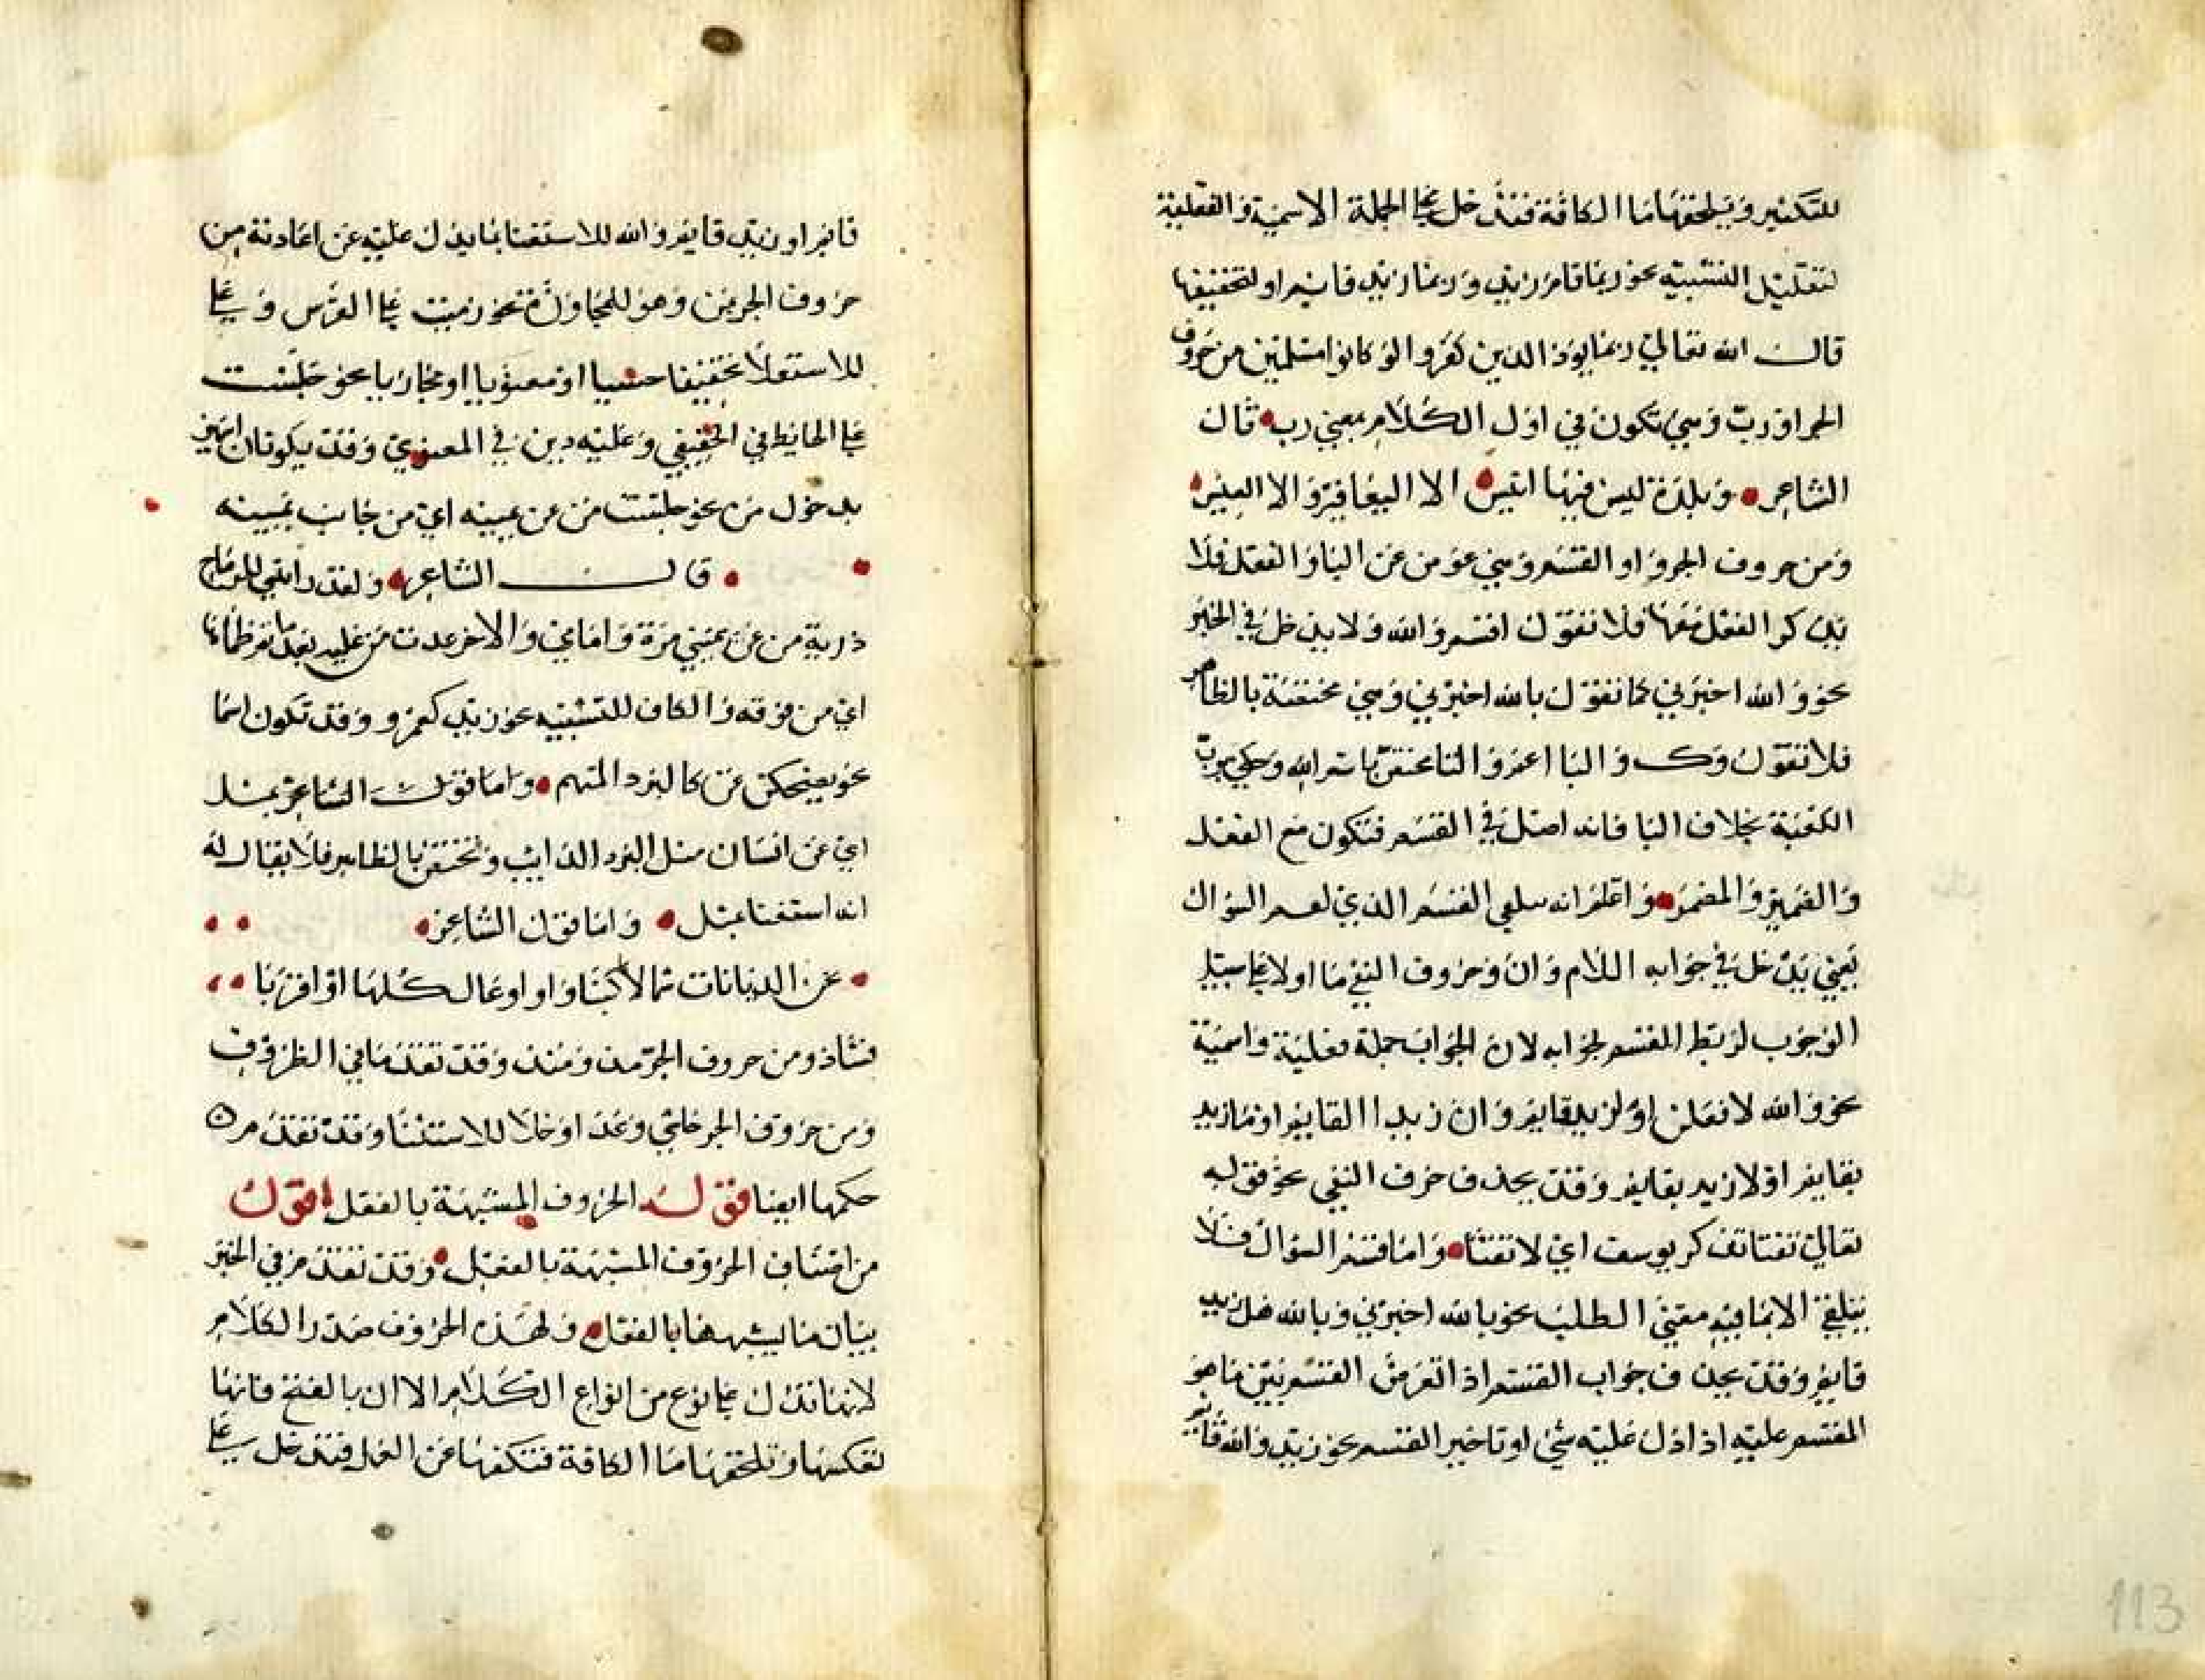 للتكثير ويلحقها ما الكافة فتدخل على الجملة الاسمية والفعلية
لتقليل النسبة نحو ربما قام زيد وربما زيد قايم او لتحقيقها
قال الله تعالي ربما يود الذين كفروا لو كانوا مسلمين من حروف
الجر او رب وهي تكون في اول الكلام بمعني رب قال
الشاعر وبلدة ليس فيها انيس الا اليعافير والا العيس
ومن حروف الجر واو القسم وهي عوض من عن البا والفعل فلا
يذكر الفعل معها فلا تقول اقسم والله ولا يدخل في الخبر
نحو والله اخبرني كما تقول بالله اخبرني وهي مختصة بالظاهر
فلا تقول وك والبا اعم والتا مختص باسم الله وحكي برب
الكعبة بخلاف البا فانه اصل في القسم فتكون مع الفعل
والضمير والمضمر واعلم انه يتلقي القسم الذي لغير السوال
يعني يدخل في جوابه اللام وان وحروف النفي ما اولا على سبيل
الوجوب لربط القسم لجوابه لان الجواب جملة فعلية واسمية
نحو والله لافعلن او لزيد قايم وان زيدا القايم او ما زيد
بقايم او لا زيد بقايم وقد يحذف حرف النفي نحو قوله
تعالي تفتا تذكر يوسف اي لا تفتا واما قسم السوال فلا
يتلقي الا بما فيه معني الطلب نحو بالله اخبرني وبالله هل زيد
قايم وقد يحذف جواب القسم اذ اعترض القسم بين ما هو
المقسم عليه اذا دل عليه شي او تاخير القسم نحو زيد والله قايم
قايم او زيد قايم والله للاستغنا بما يدل عليه عن اعادته من
حروف الجر عن وهو للمجاوزة نحو رميت على القوس وعلى
للاستعلا تحقيقا حسيا او معنويا او مجازيا نحو جلست
على الحايط في الحقيقي وعليه دين في المعنوي وقد يكونان اسمين
بدخول من نحو جلست من عن يمينه اي من جانب يمينه
قال الشاعر ولقد راني للرماح
ذرية من عن يميني مرة وامامي والاخر غدت من عليه بعد ما تم ظماها
اي من فوقه والكاف للتشبيه نحو زيد كعمرو وقد تكون اسما
نحو يضحكن عن كالبرد المنهم واما قول الشاعر بمثل
اي عن اسنان مثل البرد الذايب وتختص بالظاهر فلا يقال له
انه استغنا بمثل واما قول الشاعر
عن الذبابات شمالا كثبا وام اوعال كها او اقربا
فشاذ ومن حروف الجر مذ ومنذ وقد تقدما في الظروف
ومن حروف الجر حاشي وعدا وخلا للاستثنا وقد تقدم
حكمها ايضا قوله الحروف المشبهة بالفعل اقول
من اصناف الحروف المشبهة بالفعل وقد تقدم في الخبر
بيان ما يشبهها بالفعل ولهذه الحروف صدر الكلام
لانها تدل على نوع من انواع الكلام الا ان بالفتح فانها
تعكسها وتلحقها ما الكافة فتكفها عن العمل فتدخل على
113